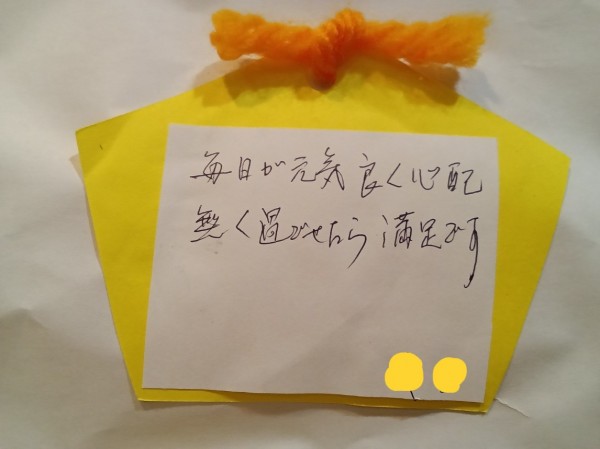 毎日が元気良く心配
無く過ごせたら満足です